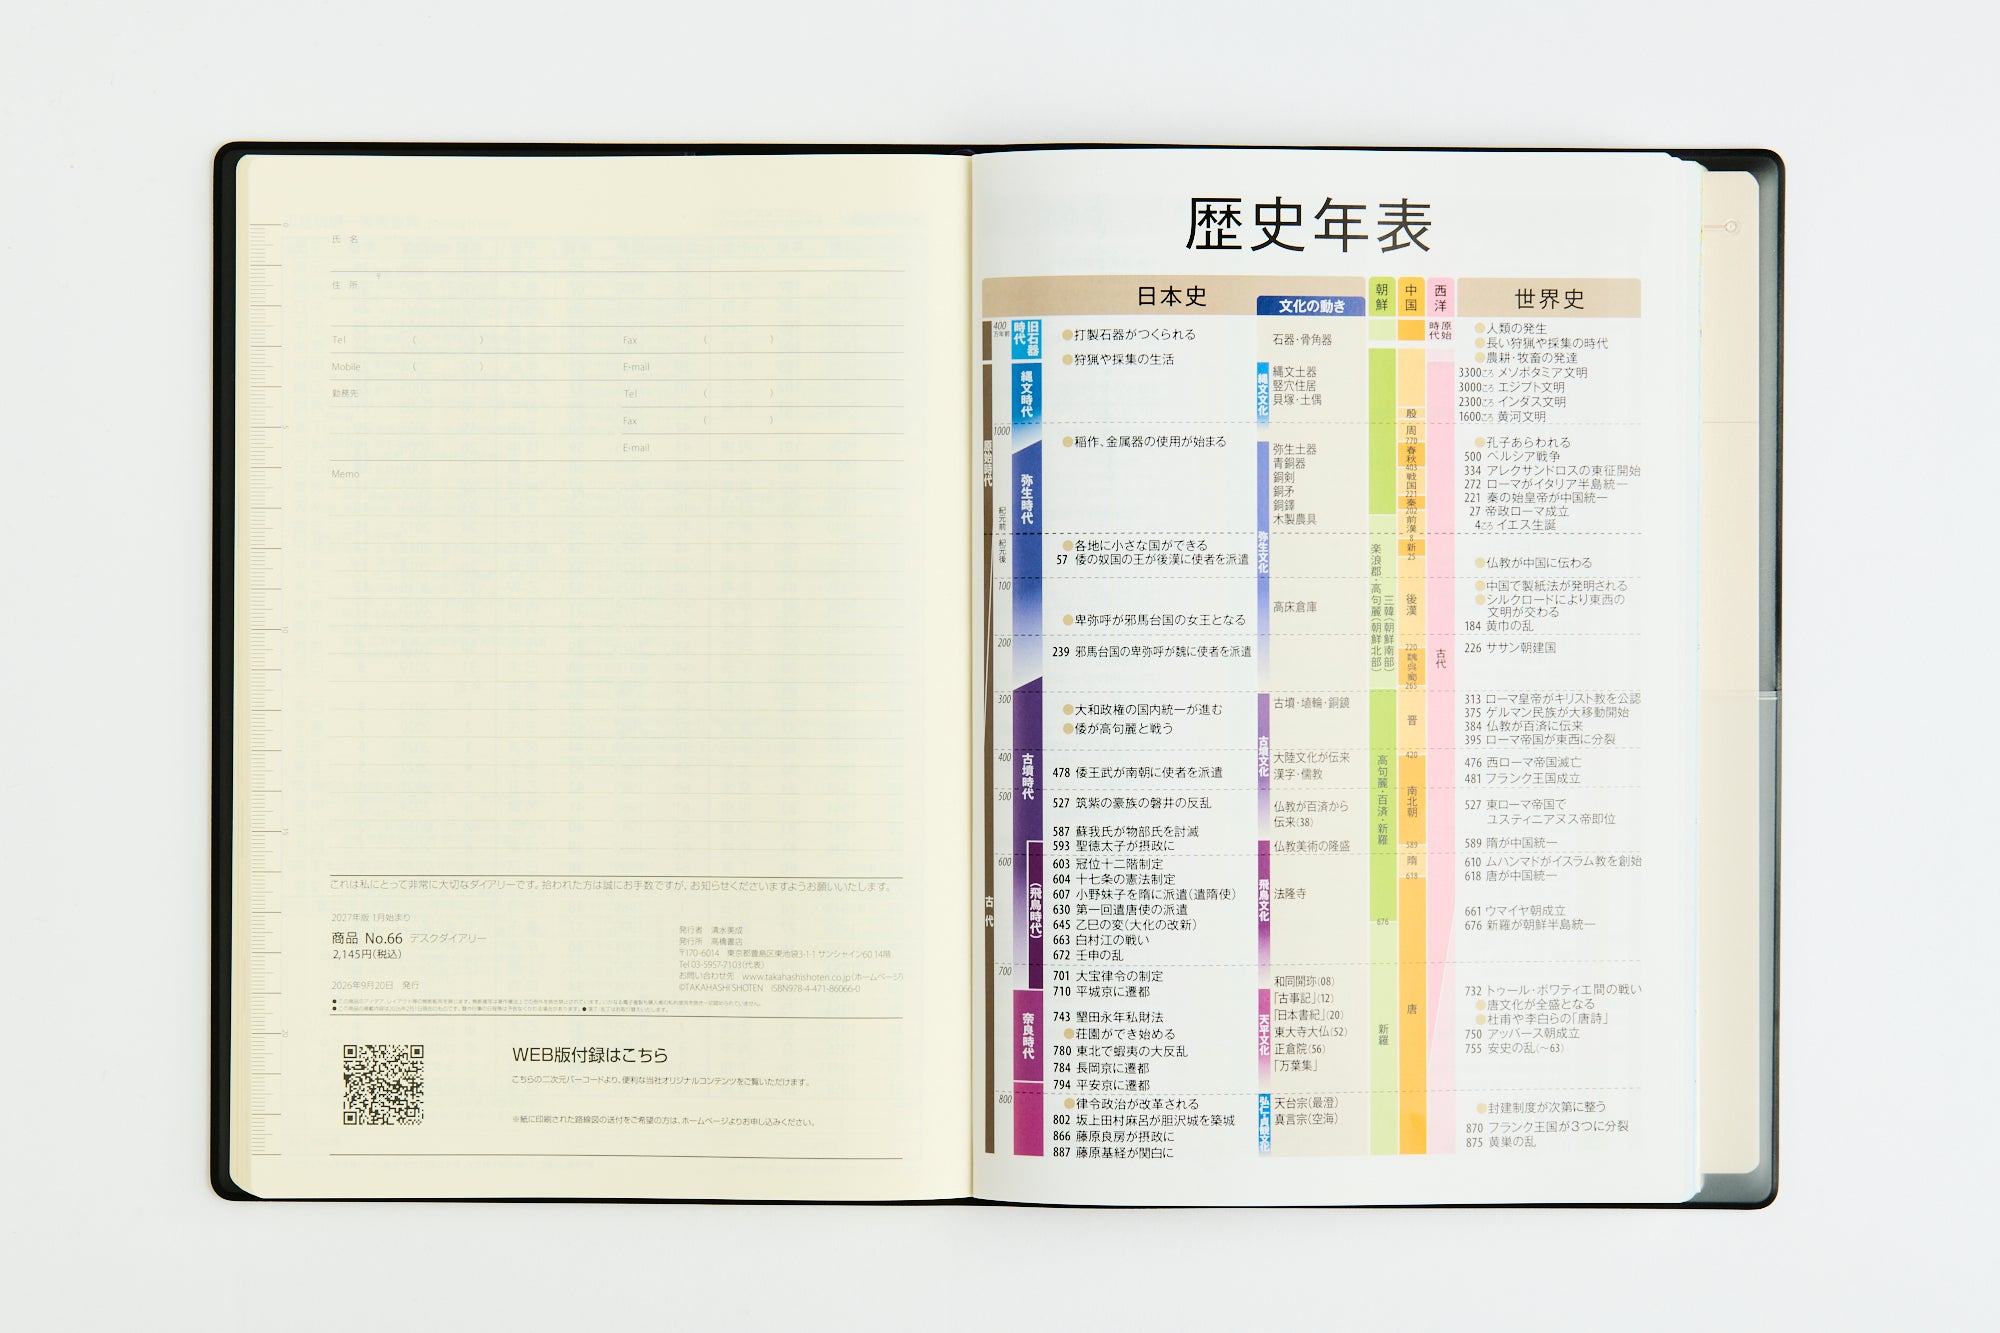 氏 名
〒
住 所
Tel ( ) Fax ( )
Mobile ( ) E-mail
勤務先 Tel ( )
Fax ( )
E-mail
Memo
これは私にとって非常に大切なダイアリーです。拾われた方は誠にお手数ですが、お知らせくださいますようお願いいたします。
2027年版 1月始まり
商品 No.66 デスクダイアリー
2,145円(税込)
2026年9月20日 発行
発行者 清水美成
発行所 高橋書店
〒170-6014 東京都豊島区東池袋3-1-1 サンシャイン60 14階
Tel 03-5957-7103(代表)
お問い合わせ先 www.takahashishoten.co.jp(ホームページ)
©TAKAHASHI SHOTEN ISBN978-4-471-86066-0
WEB版付録はこちら
こちらの二次元バーコードより、便利な当社オリジナルコンテンツをご覧いただけます。
※紙に印刷された路線図の送付をご希望の方は、ホームページよりお申し込みください。
0
5
10
15
20
歴史年表
日本史
文化の動き
朝鮮
中国
西洋
世界史
400万年前
1000
紀元前
紀元後
100
200
300
400
500
600
700
800
原始時代
古代
旧石器時代
縄文時代
弥生時代
古墳時代
(飛鳥時代)
奈良時代
●打製石器がつくられる
●狩猟や採集の生活
●稲作、金属器の使用が始まる
●各地に小さな国ができる
57 倭の奴国の王が後漢に使者を派遣
●卑弥呼が邪馬台国の女王となる
239 邪馬台国の卑弥呼が魏に使者を派遣
●大和政権の国内統一が進む
●倭が高句麗と戦う
478 倭王武が南朝に使者を派遣
527 筑紫の豪族の磐井の反乱
587 蘇我氏が物部氏を討滅
593 聖徳太子が摂政に
603 冠位十二階制定
604 十七条の憲法制定
607 小野妹子を隋に派遣(遣隋使)
630 第一回遣唐使の派遣
645 乙巳の変(大化の改新)
663 白村江の戦い
672 壬申の乱
701 大宝律令の制定
710 平城京に遷都
743 墾田永年私財法
●荘園ができ始める
780 東北で蝦夷の大反乱
784 長岡京に遷都
794 平安京に遷都
●律令政治が改革される
802 坂上田村麻呂が胆沢城を築城
866 藤原良房が摂政に
887 藤原基経が関白に
縄文文化
弥生文化
古墳文化
飛鳥文化
天平文化
弘仁・貞観文化
石器・骨角器
縄文土器
竪穴住居
貝塚・土偶
弥生土器
青銅器
銅剣
銅矛
銅鐸
木製農具
高床倉庫
古墳・埴輪・銅鏡
大陸文化が伝来
漢字・儒教
仏教が百済から
伝来(38)
仏教美術の隆盛
法隆寺
和同開珎(08)
「古事記」(12)
「日本書紀」(20)
東大寺大仏(52)
正倉院(56)
「万葉集」
天台宗(最澄)
真言宗(空海)
楽浪郡・高句麗(朝鮮北部)
三韓(朝鮮南部)
高句麗・百済・新羅
676
新羅
殷
周
770
春秋
403
戦国
221
秦
202
前漢
8
新
25
後漢
220
魏呉蜀
265
晋
420
南北朝
589
隋
618
唐
原始時代
古代
●人類の発生
●長い狩猟や採集の時代
●農耕・牧畜の発達
3300ごろ メソポタミア文明
3000ごろ エジプト文明
2300ごろ インダス文明
1600ごろ 黄河文明
●孔子あらわれる
500 ペルシア戦争
334 アレクサンドロスの東征開始
272 ローマがイタリア半島統一
221 秦の始皇帝が中国統一
27 帝政ローマ成立
4ごろ イエス生誕
●仏教が中国に伝わる
●中国で製紙法が発明される
●シルクロードにより東西の
文明が交わる
184 黄巾の乱
226 ササン朝建国
313 ローマ皇帝がキリスト教を公認
375 ゲルマン民族が大移動開始
384 仏教が百済に伝来
395 ローマ帝国が東西に分裂
476 西ローマ帝国滅亡
481 フランク王国成立
527 東ローマ帝国で
ユスティニアヌス帝即位
589 隋が中国統一
610 ムハンマドがイスラム教を創始
618 唐が中国統一
661 ウマイヤ朝成立
676 新羅が朝鮮半島統一
732 トゥール・ポワティエ間の戦い
●唐文化が全盛となる
●杜甫や李白らの「唐詩」
750 アッバース朝成立
755 安史の乱(～63)
●封建制度が次第に整う
870 フランク王国が3つに分裂
875 黄巣の乱